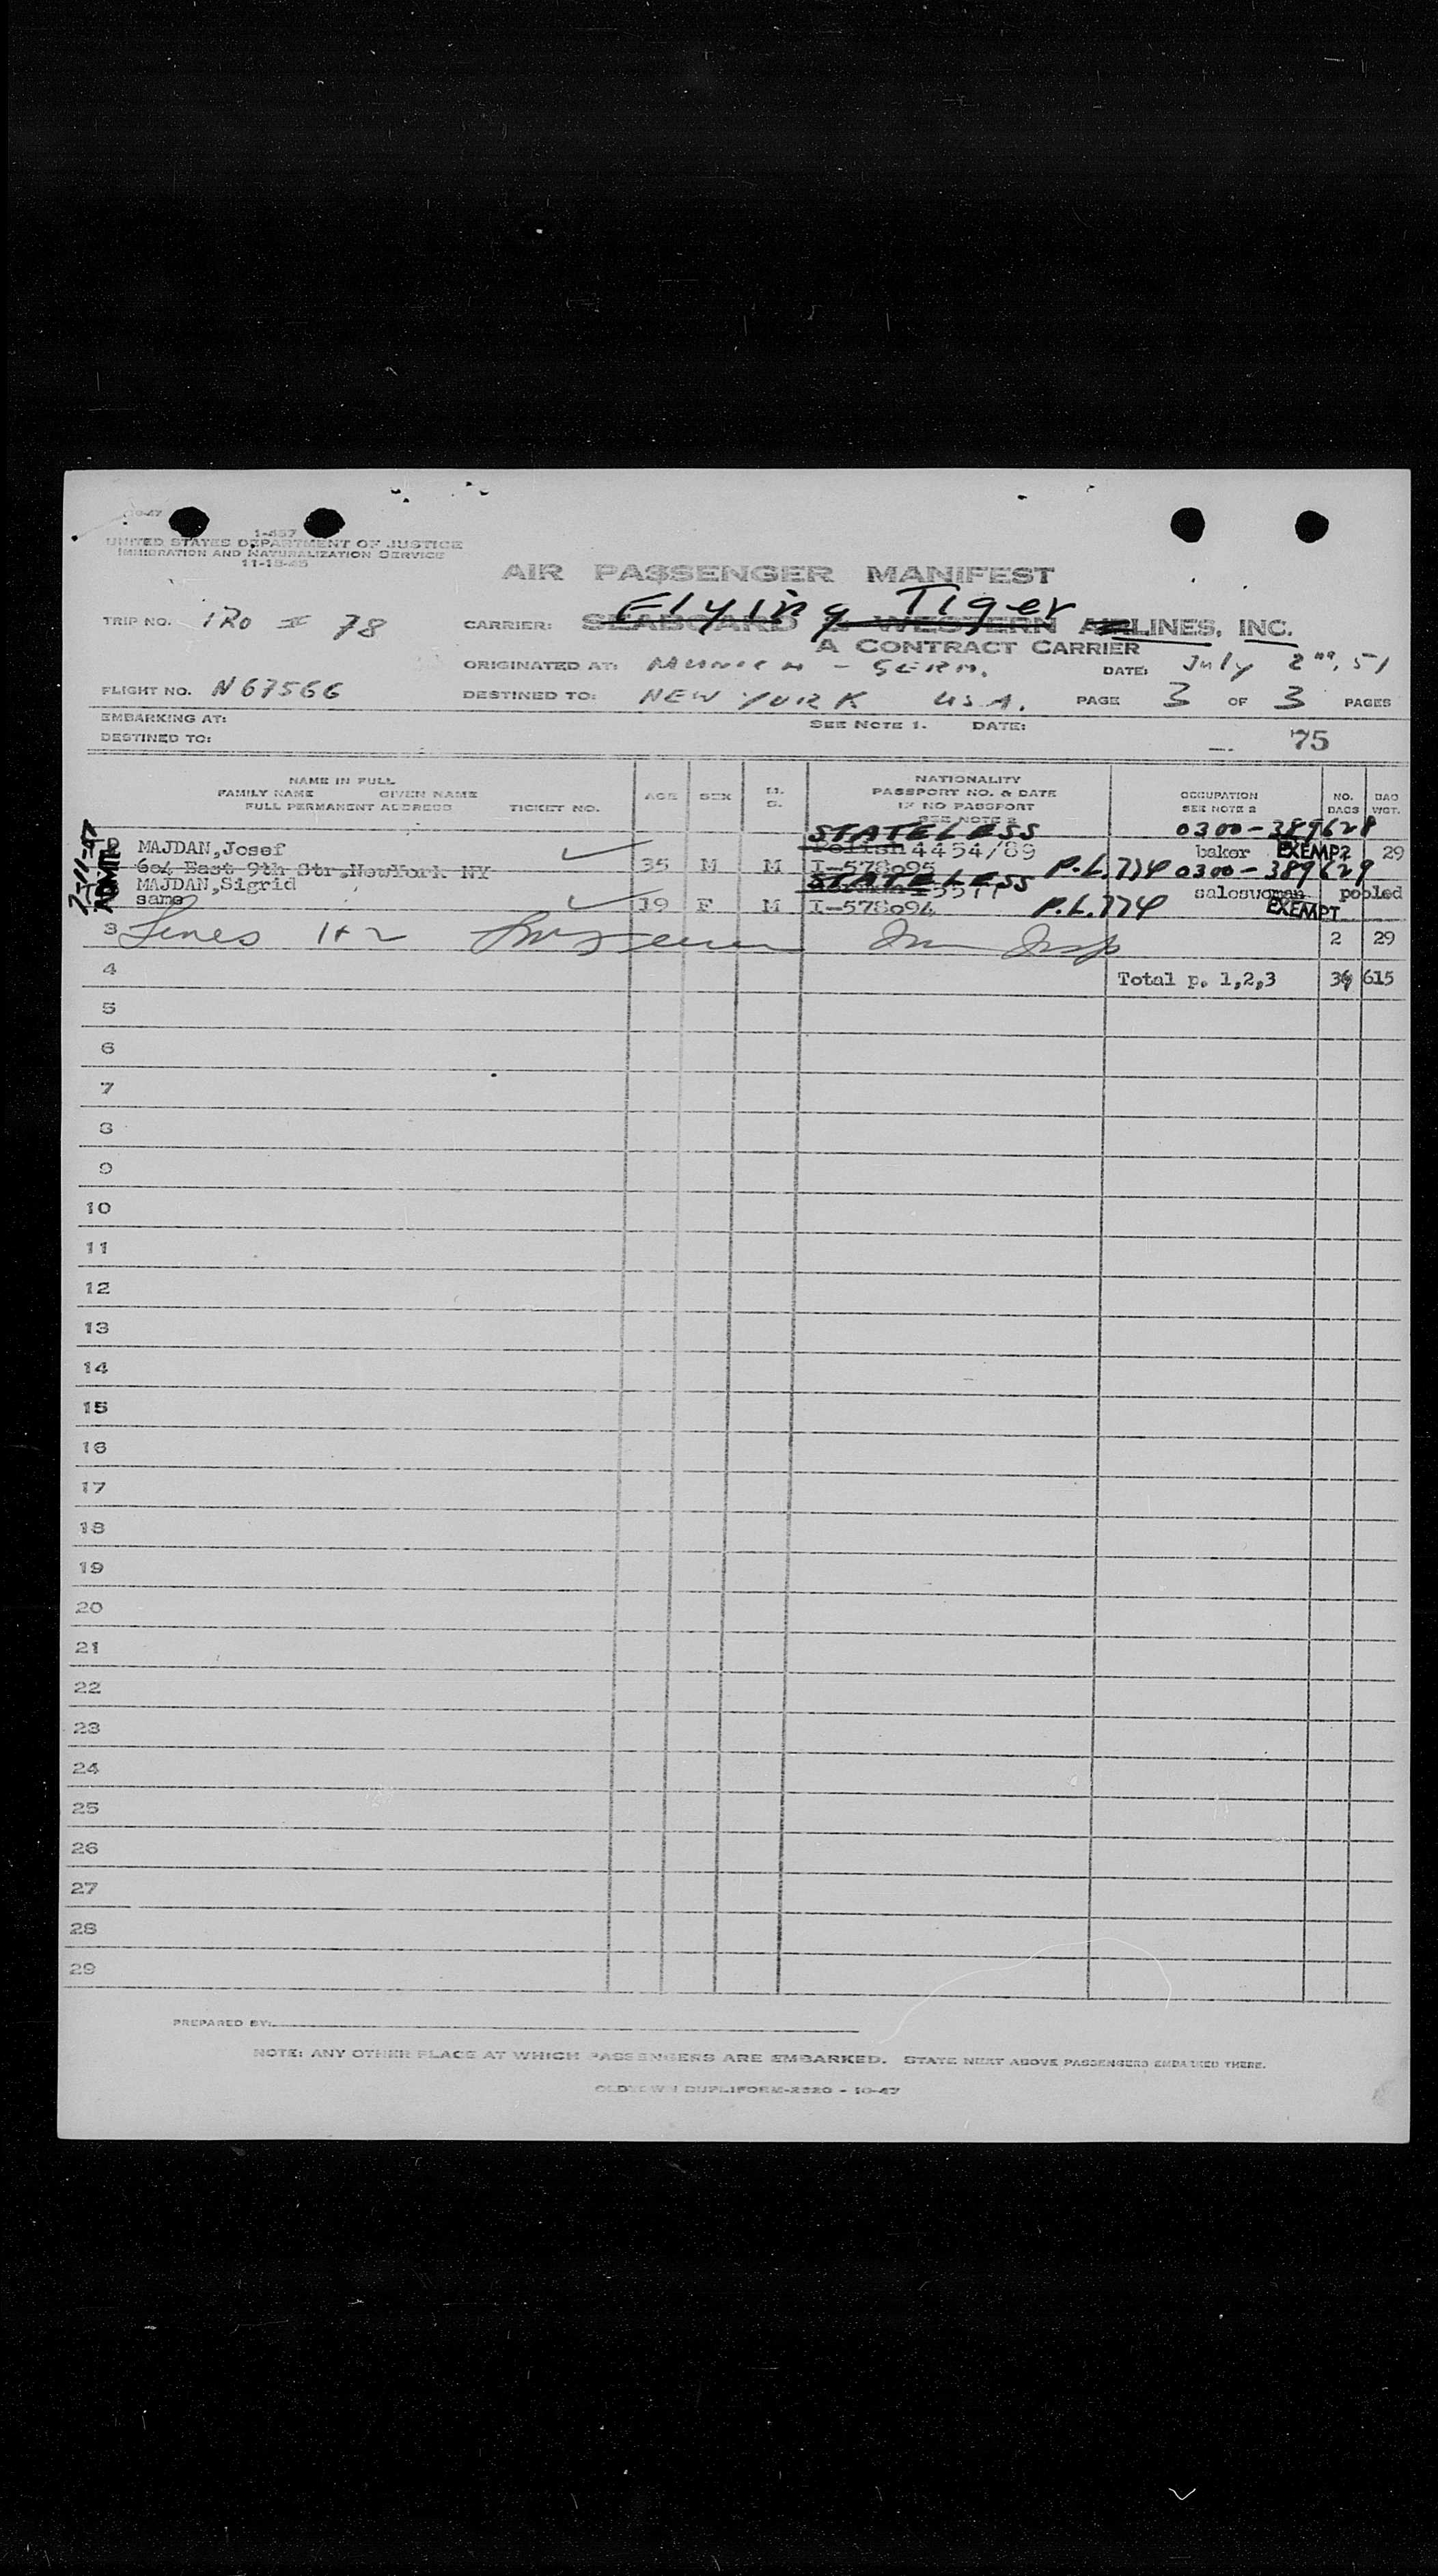 10-47
I-457
UNITED STATES DEPARTMENT OF JUSTICE
IMMIGRATION AND NATURALIZATION SERVICE
11-15-45
AIR PASSENGER MANIFEST
Flying Tiger
TRIP NO. IRO # 78 CARRIER: SEABOARD & WESTERN AIRLINES, INC.
A CONTRACT CARRIER
ORIGINATED AT: MUNICH - GERM. DATE: July 2nd, 51
FLIGHT NO. N67566 DESTINED TO: NEW YORK USA. PAGE 3 OF 3 PAGES
EMBARKING AT: SEE NOTE 1. DATE:
DESTINED TO: 75
NAME IN FULL
FAMILY NAME GIVEN NAME
FULL PERMANENT ADDRESS TICKET NO.
AGE SEX M. S.
NATIONALITY
PASSPORT NO. & DATE
IF NO PASSPORT
SEE NOTE 2
OCCUPATION
SEE NOTE 2
NO. BAGS
BAG WGT.
ADMIT
STATELESS 0300-389628
MAJDAN, Josef Polish 4454/89 baker EXEMPT 29
604 East 9th Str.,NewYork NY 35 M M I-578095 P.L. 774 0300-389629
MAJDAN, Sigrid STATELESS saleswoman pooled
same 19 F M I-578094 P.L. 774 EXEMPT
3 Lines 1+2 Imm Insp 2 29
4 Total p. 1,2,3 615
5
6
7
8
9
10
11
12
13
14
15
16
17
18
19
20
21
22
23
24
25
26
27
28
29
PREPARED BY:
NOTE: ANY OTHER PLACE AT WHICH PASSENGERS ARE EMBARKED. STATE NEXT ABOVE PASSENGERS EMBARKED THERE.
OLDTOWN DUPLIFORM-2320 - 10-47